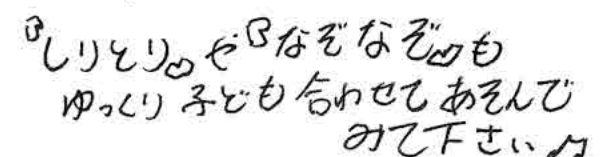 『しりとり』や『なぞなぞ』も
ゆっくり子ども合わせてあそんで
みて下さい♪